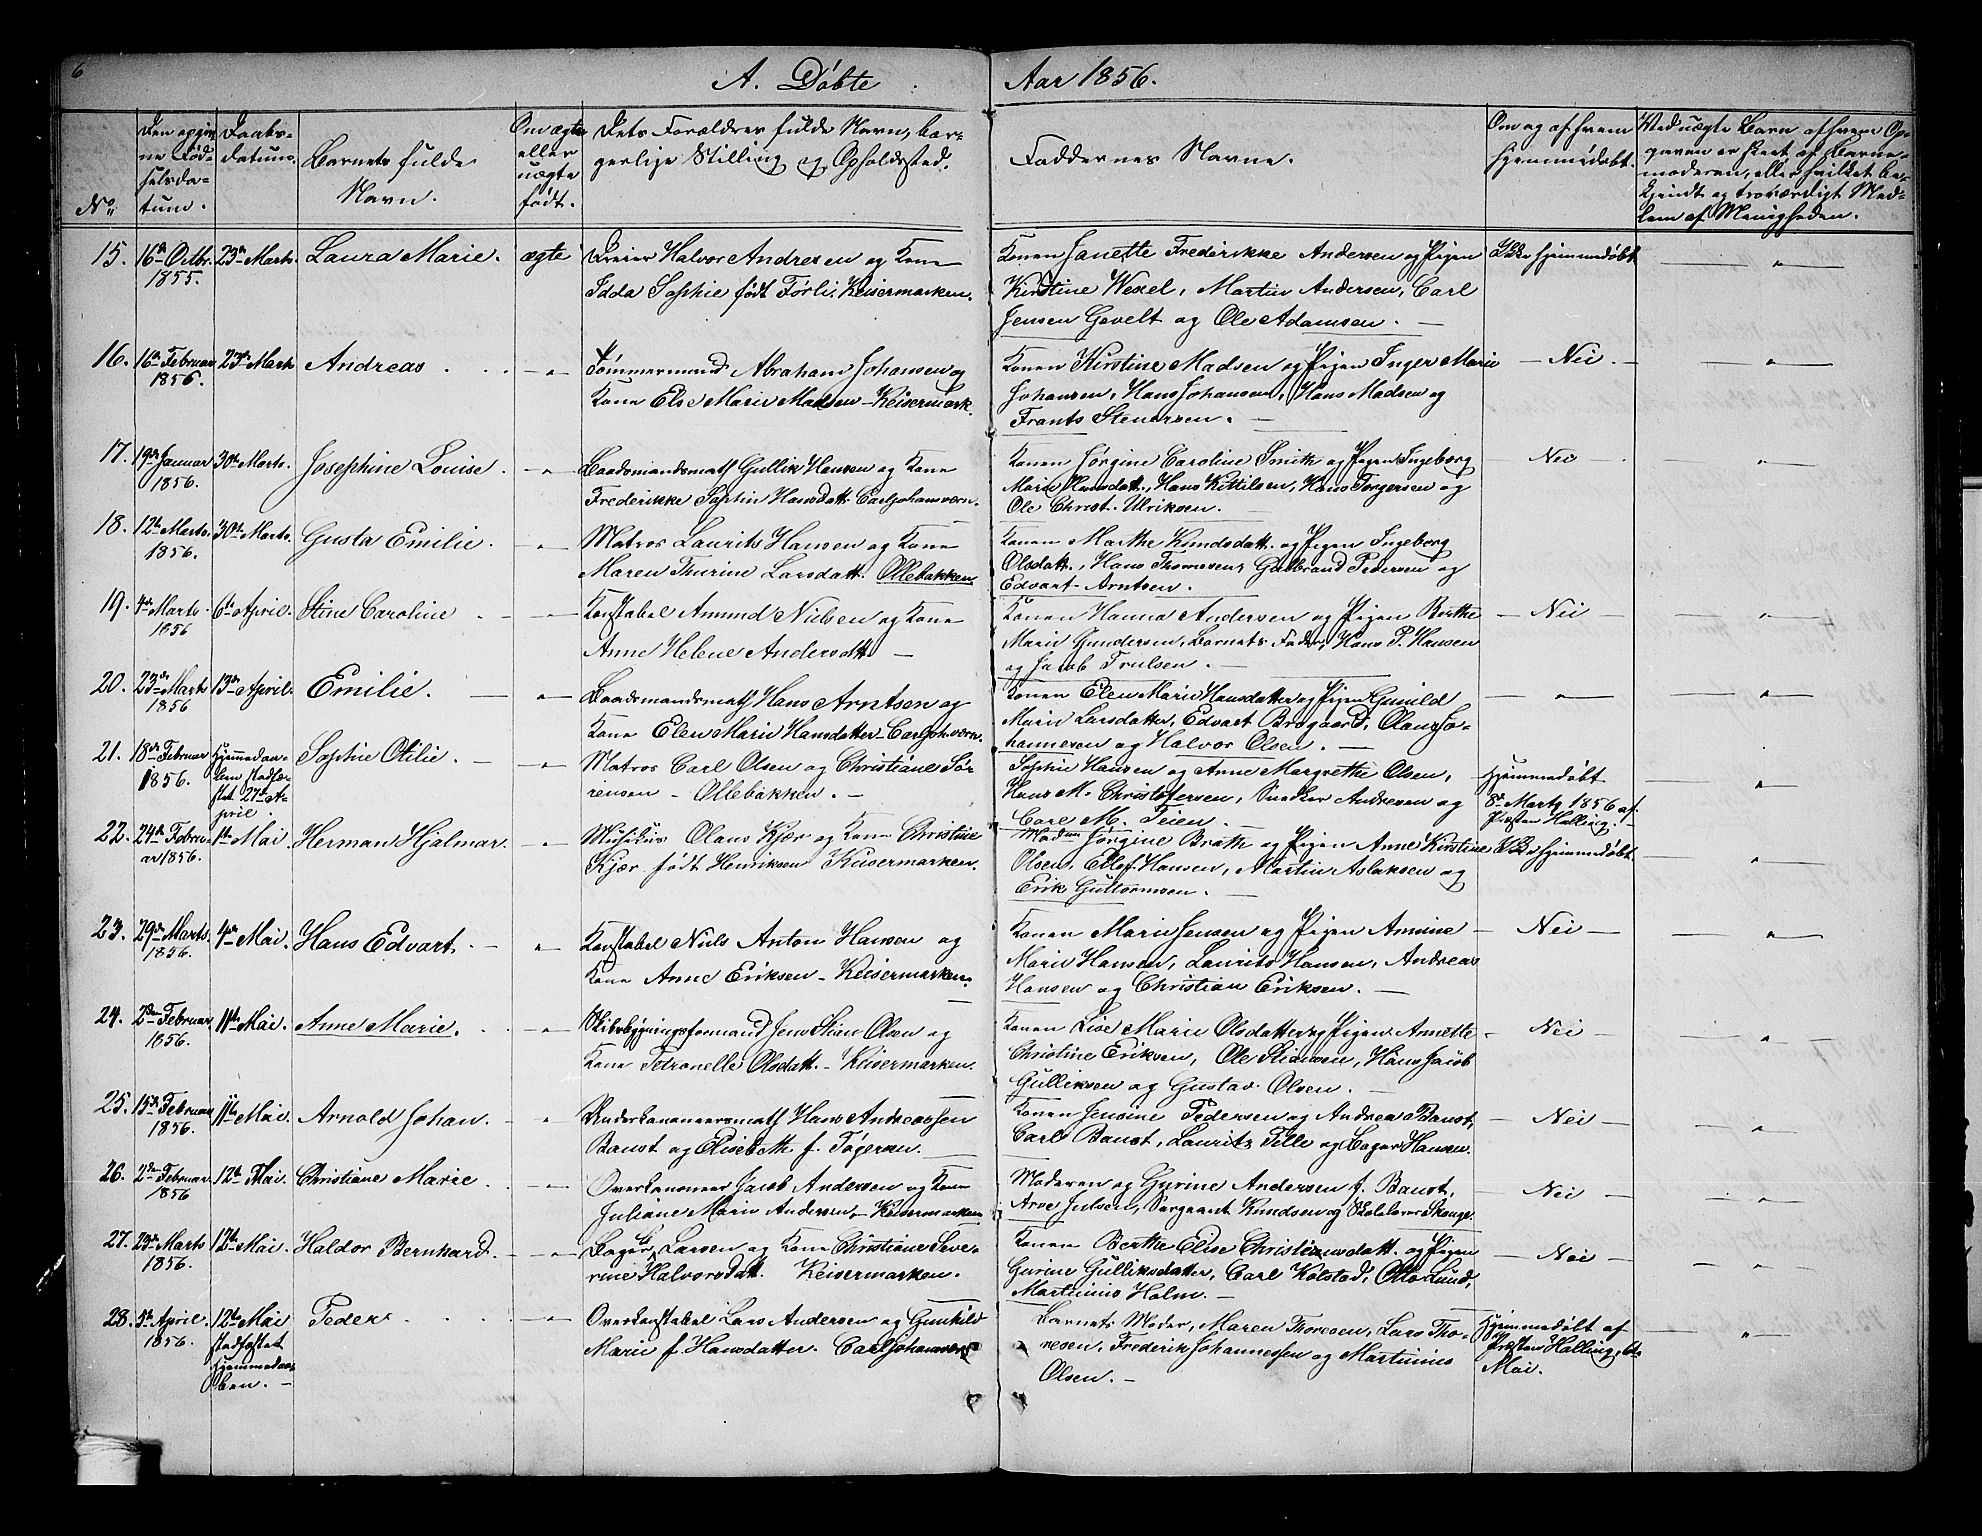 6
A. Döbte
Aar 1856.
No
Den opgivne Fødselsdatum.
Daabsdatum.
Barnets fulde Navn.
Om ægte eller uægte født.
Dets Forældres fulde Navn, borgerlige Stilling og Opholdssted.
Faddernes Navne.
Om og af hvem hjemmedøbt.
Ved uægte Barn af hvem Opgaven er skeet af Barnemoderen, eller hvilket bekjendt og troværdigt Medlem af Menigheden.
15. 16de Octbr. 23de Marts Laura Marie. ægte Dreier Halvor Andresen og Kone Konen Janette Frederikke Andersen og Pigen Ikke hjemmedøbt — " —
1855. Idda Sophie født Førli. Keisermarken. Kirstine Wexel, Martin Andersen, Carl
Jensen Gevelt og Ole Adamsen. —
16. 16de Februar 23de Marts Andreas . — " — Tømmermand Abraham Johansen og Konen Kirstine Madsen og Pigen Inger Marie — Nei — — " —
1856. Kone Else Marie Madsen - Keisermark. Johansen, Hans Johansen, Hans Madsen og
Frants Stenersen. —
17. 19de Januar 30te Marts. Josephine Louise . — " — Baadsmandsmath Gullik Hansen og Kone Konen Jørgine Caroline Smith og Pigen Ingeborg — Nei — — " —
1856. Frederikke Sophie Hansdatt. Carljohansværn. Marie Hansdatt., Hans Kittilsen, Hans Torgersen og
Ole Christ. Ulriksen.
18. 12te Marts. 30te Marts. Gusta Emilie. — " — Matros Laurits Hansen og Kone Konen Marthe Knudsdatt. og Pigen Ingeborg
1856. Maren Thurine Larsdatt. Ollebakken Olsdatt., Hans Thomesen, Gulbrand Pedersen og
Edvart Arntsen.
19. 4de Marts. 6te April. Stine Caroline — " — Konstabel Amund Nielsen og Kone Konen Hanna Andersen og Pigen Berthe — Nei — — " —
1856 Anne Helene Andersdtt — Marie Gundersen, Barnets Fader, Hans P. Hansen
og Jacob Trulsen. —
20. 23de Marts 13de April. Emilie. — " — Baadsmandsmath Hans Arntsen og Konen Elen Marie Hansdatter og Pigen Gunild — " — — " —
1856 Kone Elen Marie Hansdatter - Carljohsværn. Marie Larsdatter, Edvart Brogaard, Olaus Jo-
hannesen og Halvor Olsen. —
21. 18de Februar Hjemmedaa- Sophie Otilie. — " — Matros Carl Olsen og Christiane Sø- Sophie Hansen og Anne Margrethe Olsen, Hjemmedøbt — " —
1856. ben stadfæ- rensen - Ollebakken. — Hans M. Christofersen, Snedker Andresen og 8de Marts 1856 af
stet 27de A- Carl M. Teien. — Præsten Halling. —
pril.
22. 24de Febru- 1ste Mai. Herman Hjalmar. — " — Musikus Olaus Kjær og Kone Christine Madm Jørgine Brath og Pigen Anne Kirstine Ikke hjemmedøbt. — " —
ar 1856. Kjær født Henriksen Keisermarken. Olsen, Ellef Hansen, Martin Aslaksen og
Erik Guttormsen. —
23. 29de Marts. 4de Mai. Hans Edvart. — " — Konstabel Niels Anton Hansen og Konen Marie Jensen og Pigen Annine — Nei — — " —
1856. Kone Anne Eriksen - Keisermarken. Marie Hansen, Laurits Hansen, Andreas
Hansen og Christian Eriksen. —
24. 2den Februar 11te Mai. Anne Marie. — " — Skibsbygningsformand Jens Stian Olsen og Konen Lise Marie Olsdatter og Pigen Annette — Nei — — " —
1856. Kone Petronelle Olsdatt. - Keisermarken. Christine Eriksen, Ole Stiansen, Hans Jacob
Gulliksen og Gustav Olsen. —
25. 15de Februar 11te Mai. Arnold Johan. — " — Underkanoneersmath Hans Andreassen Konen Jensine Pedersen og Andrea Baust, — Nei — — " —
1856. Baust og Elisebeth f. Tøgersen. Carls Baust, Lauritz Felle og Bager Hansen.
26. 2den Februar 12te Mai. Christiane Marie. — " — Overkanoneer Jacob Andersen og Kone Moderen og Gurine Andersen f. Baust, — Nei — — " —
1856 Juliane Marie Andersen - Keisermarken Arve Julsen, Sergeant Knudsen og Skolelærer Skauge.
27. 23de Marts 12te Mai. Haldor Bernhard. — " — Bager Larsen og Kone Christiane Seve- Konen Berthe Elise Christiansdatt. og Pigen — Nei — — " —
1856. rine Halvorsdatt. Keisermarken. Gurine Gulliksdatter, Carl Kolstad, Otto Lund,
Martinius Holm. —
28. 5te April. 12te Mai Peder . — " — Overkonstabel Lars Andersen og Gunhild Barnets Moder, Maren Thoresen, Lars Tho- Hjemmedøbt af — " —
1856. stadfæstet Marie f. Hansdatter. Carljohansværn resen, Frederik Johannessen og Martinius Præsten Halling, 6te
Hjemmedaa- Olsen. — Mai.
ben. —